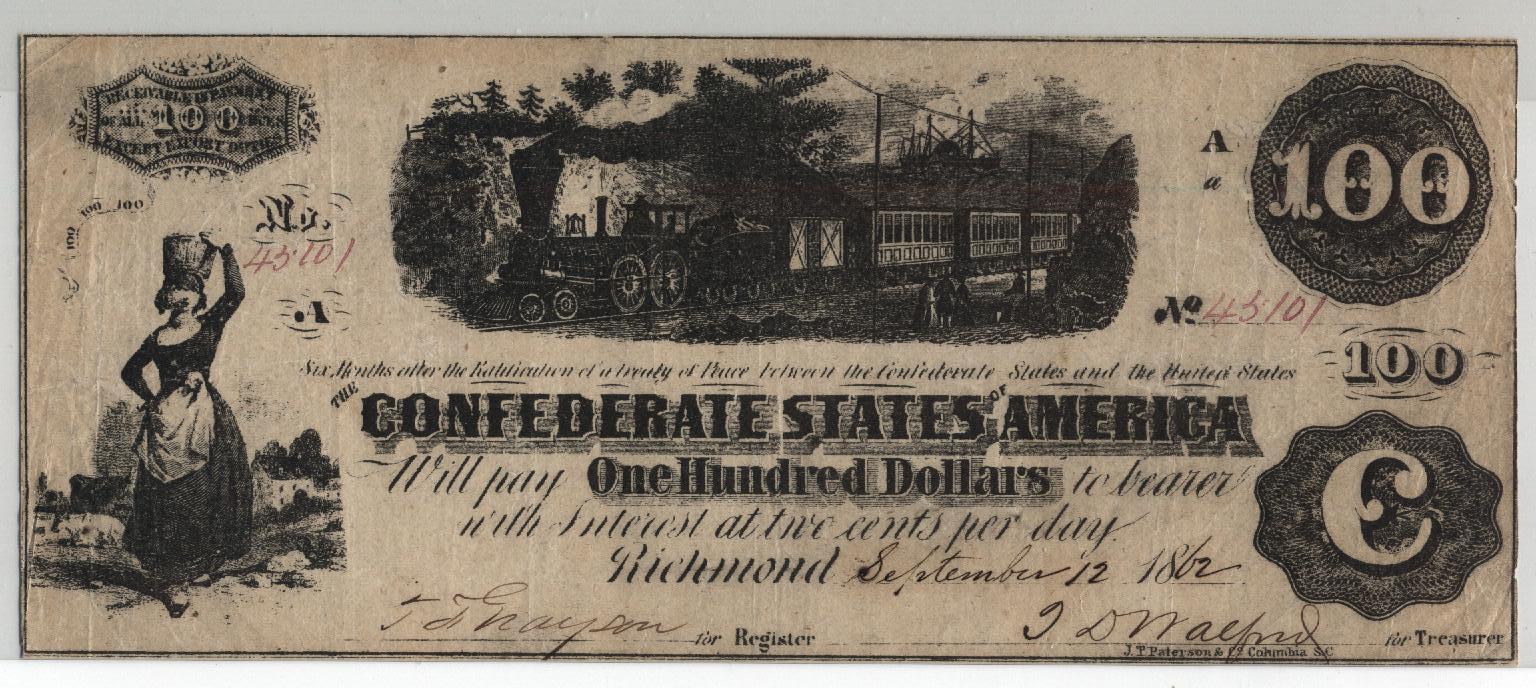 RECEIVABLE IN PAYMENT
OF ALL 100 DUES
EXCEPT EXPORT DUTIES
100 100
100
No.
43101
A
A
a
100
No 43101
100
Six Months after the Ratification of a treaty of Peace between the Confederate States and the United States
THE CONFEDERATE STATES OF AMERICA
Will pay One Hundred Dollars to bearer
with Interest at two cents per day.
Richmond September 12 1862
C
for Register
for Treasurer
J.T. Paterson & Co Columbia S.C